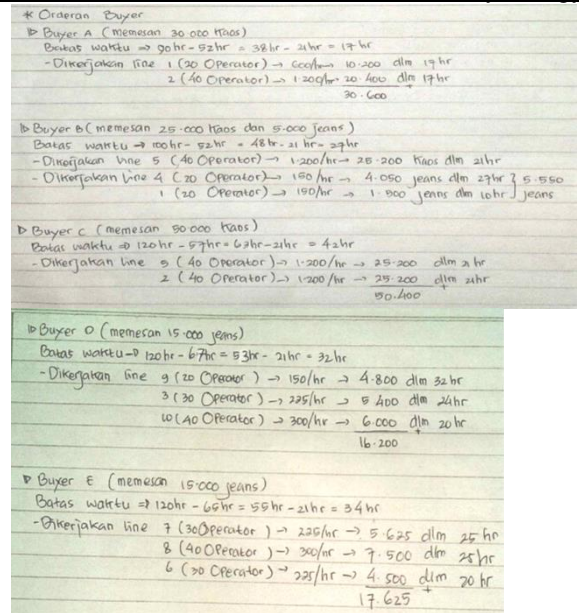 * Orderan Buyer
▷ Buyer A (memesan 30.000 kaos)
Batas waktu → 90hr - 52hr = 38hr - 21hr = 17hr
- Dikerjakan line 1 (20 Operator) → 600/hr → 10.200 dlm 17hr
2 (40 Operator) → 1.200/hr → 20.400 dlm 17hr
30.600
▷ Buyer B (memesan 25.000 kaos dan 5.000 jeans)
Batas waktu → 100hr - 52hr = 48hr - 21hr = 27hr
- Dikerjakan line 5 (40 Operator) → 1.200/hr → 25.200 kaos dlm 21hr
- Dikerjakan line 4 (20 Operator) → 150/hr → 4.050 jeans dlm 27hr } 5.550
1 (20 Operator) → 150/hr → 1.500 jeans dlm 10hr } jeans
▷ Buyer C (memesan 50.000 kaos)
Batas waktu ⇒ 120hr - 57hr = 63hr - 21hr = 42hr
- Dikerjakan line 5 (40 Operator) → 1.200/hr → 25.200 dlm 21hr
2 (40 Operator) → 1.200/hr → 25.200 dlm 21hr
50.400
▷ Buyer D (memesan 15.000 jeans)
Batas waktu → 120hr - 67hr = 53hr - 21hr = 32hr
- Dikerjakan line 9 (20 Operator) → 150/hr → 4.800 dlm 32hr
3 (30 Operator) → 225/hr → 5.400 dlm 24hr
10 (40 Operator) → 300/hr → 6.000 dlm 20hr
+
16.200
▷ Buyer E (memesan 15.000 jeans)
Batas waktu ⇒ 120hr - 65hr = 55hr - 21hr = 34hr
- Dikerjakan line 7 (30 Operator) → 225/hr → 5.625 dlm 25hr
8 (40 Operator) → 300/hr → 7.500 dlm 25hr
6 (30 Operator) → 225/hr → 4.500 dlm 20hr
+
17.625